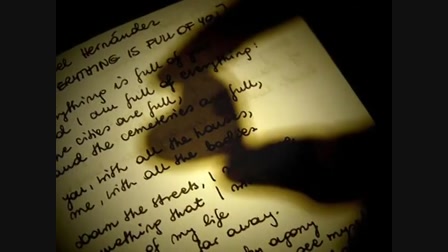 Hernández
EVERYTHING IS FULL OF YOU
everything is full of you
and I am full of everything:
the cities are full,
and the cemeteries are full,
you, with all the houses,
me, with all the bodies
Down the streets, I
something that I
of my life
far away.
by agony
see myself